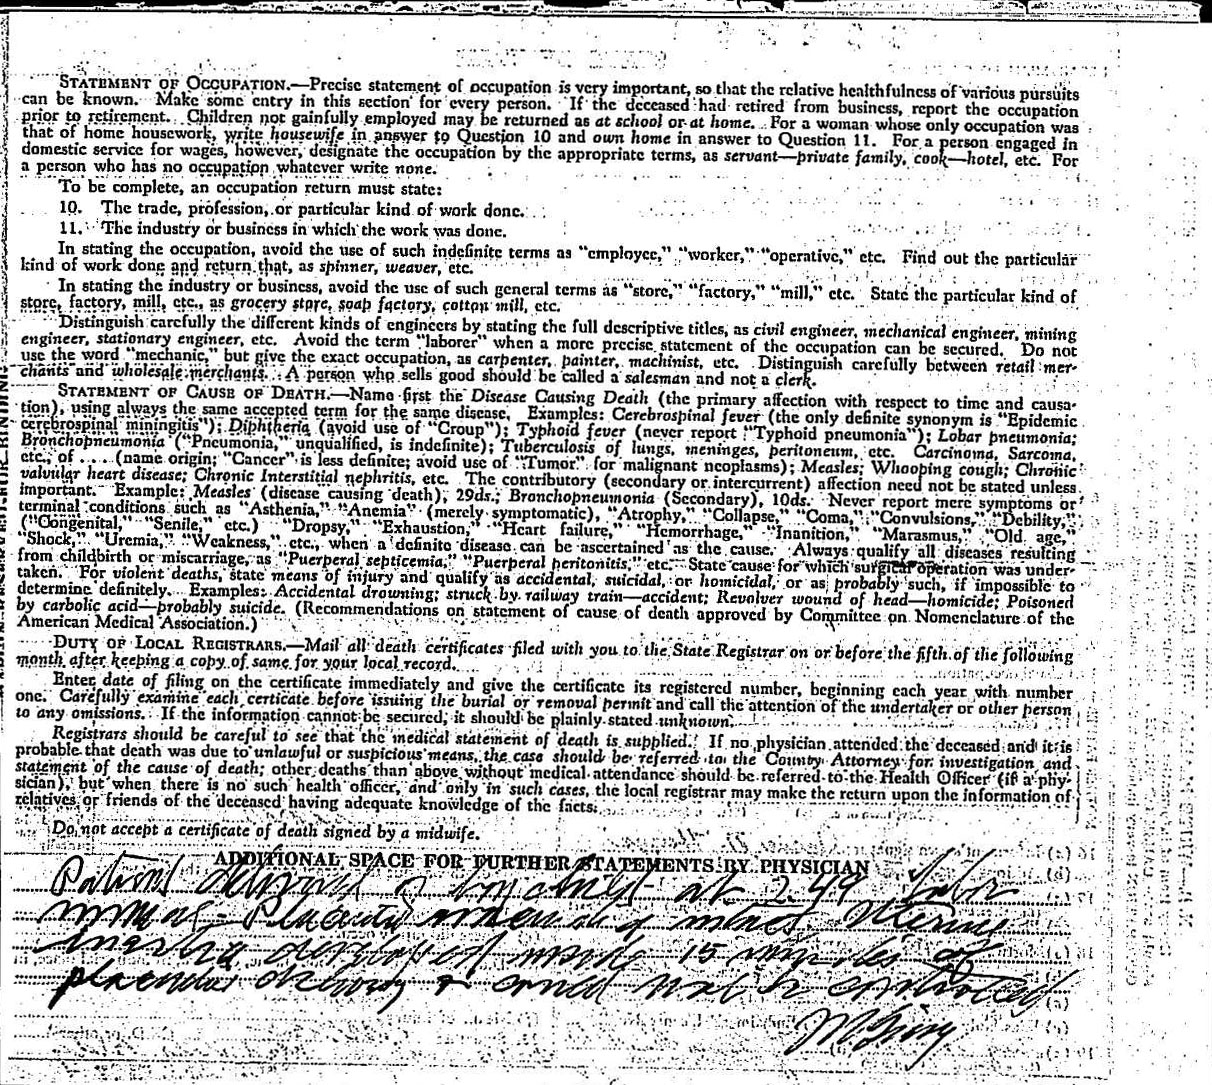 STATEMENT OF OCCUPATION.—Precise statement of occupation is very important, so that the relative healthfulness of various pursuits
can be known. Make some entry in this section for every person. If the deceased had retired from business, report the occupation
prior to retirement. Children not gainfully employed may be returned as at school or at home. For a woman whose only occupation was
that of home housework, write housewife in answer to Question 10 and own home in answer to Question 11. For a person engaged in
domestic service for wages, however, designate the occupation by the appropriate terms, as servant—private family, cook—hotel, etc. For
a person who has no occupation whatever write none.
To be complete, an occupation return must state:
10. The trade, profession, or particular kind of work done.
11. The industry or business in which the work was done.
In stating the occupation, avoid the use of such indefinite terms as "employee," "worker," "operative," etc. Find out the particular
kind of work done and return that, as spinner, weaver, etc.
In stating the industry or business, avoid the use of such general terms as "store," "factory," "mill," etc. State the particular kind of
store, factory, mill, etc., as grocery store, soap factory, cotton mill, etc.
Distinguish carefully the different kinds of engineers by stating the full descriptive titles, as civil engineer, mechanical engineer, mining
engineer, stationary engineer, etc. Avoid the term "laborer" when a more precise statement of the occupation can be secured. Do not
use the word "mechanic," but give the exact occupation, as carpenter, painter, machinist, etc. Distinguish carefully between retail mer-
chants and wholesale merchants. A person who sells good should be called a salesman and not a clerk.
STATEMENT OF CAUSE OF DEATH.—Name first the Disease Causing Death (the primary affection with respect to time and causa-
tion), using always the same accepted term for the same disease. Examples: Cerebrospinal fever (the only definite synonym is "Epidemic
cerebrospinal miningitis"); Diphtheria (avoid use of "Croup"); Typhoid fever (never report "Typhoid pneumonia"); Lobar pneumonia;
Bronchopneumonia ("Pneumonia," unqualified, is indefinite); Tuberculosis of lungs, meninges, peritoneum, etc. Carcinoma, Sarcoma,
etc., of .... (name origin; "Cancer" is less definite; avoid use of "Tumor" for malignant neoplasms); Measles; Whooping cough; Chronic
valvular heart disease; Chronic Interstitial nephritis, etc. The contributory (secondary or intercurrent) affection need not be stated unless
important. Example: Measles (disease causing death), 29ds.; Bronchopneumonia (Secondary), 10ds. Never report mere symptoms or
terminal conditions such as "Asthenia," "Anemia" (merely symptomatic), "Atrophy," "Collapse," "Coma," "Convulsions," "Debility,"
("Congenital," "Senile," etc.) "Dropsy," "Exhaustion," "Heart failure," "Hemorrhage," "Inanition," "Marasmus," "Old age,"
"Shock," "Uremia," "Weakness," etc., when a definite disease can be ascertained as the cause. Always qualify all diseases resulting
from childbirth or miscarriage, as "Puerperal septicemia," "Puerperal peritonitis," etc. State cause for which surgical operation was under-
taken. For violent deaths, state means of injury and qualify as accidental, suicidal, or homicidal, or as probably such, if impossible to
determine definitely. Examples: Accidental drowning; struck by railway train—accident; Revolver wound of head—homicide; Poisoned
by carbolic acid—probably suicide. (Recommendations on statement of cause of death approved by Committee on Nomenclature of the
American Medical Association.)
DUTY OF LOCAL REGISTRARS.—Mail all death certificates filed with you to the State Registrar on or before the fifth of the following
month after keeping a copy of same for your local record.
Enter date of filing on the certificate immediately and give the certificate its registered number, beginning each year with number
one. Carefully examine each certicate before issuing the burial or removal permit and call the attention of the undertaker or other person
to any omissions. If the information cannot be secured, it should be plainly stated unknown.
Registrars should be careful to see that the medical statement of death is supplied. If no physician attended the deceased and it is
probable that death was due to unlawful or suspicious means, the case should be referred to the County Attorney for investigation and
statement of the cause of death; other deaths than above without medical attendance should be referred to the Health Officer (if a phy-
sician), but when there is no such health officer, and only in such cases, the local registrar may make the return upon the information of
relatives or friends of the deceased having adequate knowledge of the facts.
Do not accept a certificate of death signed by a midwife.
ADDITIONAL SPACE FOR FURTHER STATEMENTS BY PHYSICIAN
Patient delivered of boy child at 2:49 Labor
normal - Placenta intact. Uterine
inertia developed inside 15 minutes of
placental delivery & could not be controlled